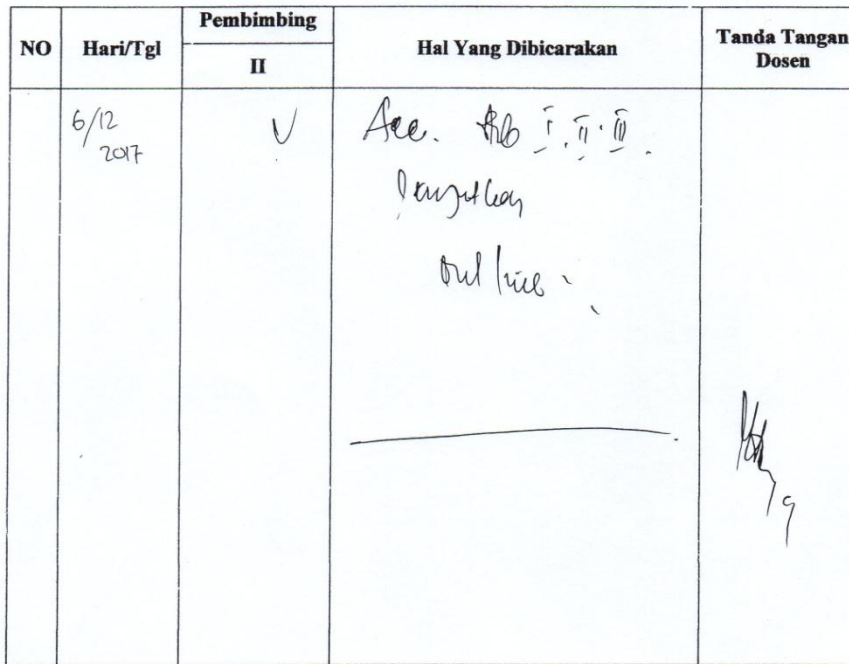 NO Hari/Tgl Pembimbing II Hal Yang Dibicarakan Tanda Tangan Dosen
6/12 2017 V Acc. Bab I. II. III.